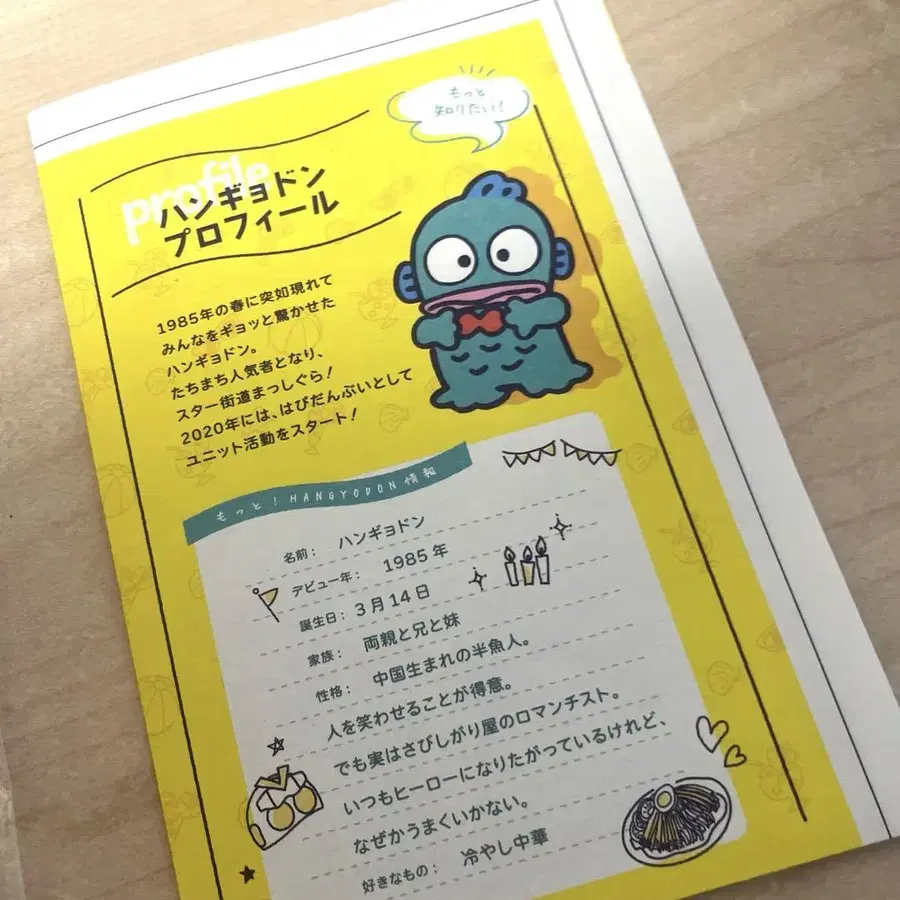 もっと
知りたい！
profile
ハンギョドン
プロフィール
1985年の春に突如現れて
みんなをギョッと驚かせた
ハンギョドン。
たちまち人気者となり、
スター街道まっしぐら！
2020年には、はぴだんぶいとして
ユニット活動をスタート！
もっと！HANGYODON情報
名前： ハンギョドン
デビュー年： 1985年
誕生日： 3月14日
家族： 両親と兄と妹
性格： 中国生まれの半魚人。
人を笑わせることが得意。
でも実はさびしがり屋のロマンチスト。
いつもヒーローになりたがっているけれど、
なぜかうまくいかない。
好きなもの： 冷やし中華